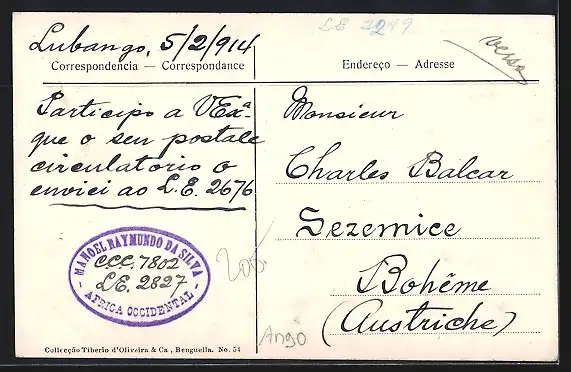 LE 7249
versa
Lubango, 5/2/914
Correspondencia — Correspondance
Endereço — Adresse
Participo a VExª
que o seu postale
circulatorio o
enviei ao L.E. 2676
Monsieur
Charles Balcar
Sezemice
Bohême
(Austriche)
MANOEL RAYMUNDO DA SILVA
CCC. 7802
LE. 2827
- AFRICA OCCIDENTAL -
200
Ango
Collecção Tiberio d'Oliveira & Ca, Benguella. No. 54